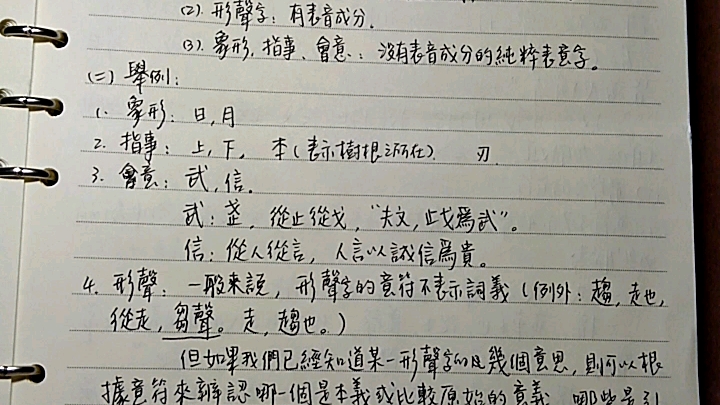 (2). 形聲字：有表音成分。
(3). 象形、指事、會意：沒有表音成分的純粹表意字。
(二) 舉例：
1. 象形：日，月
2. 指事：上，下，本(表示樹根之所在). 刃.
3. 會意：武，信。
武：从止从戈，“夫文，止戈爲武”。
信：從人從言，人言以誠信爲貴。
4. 形聲：一般來說，形聲字的意符不表示詞義(例外：趨，走也，
從走，芻聲。走，趨也。)
但如果我們已經知道某一形聲字的幾個意思，則可以根
據意符來辨認哪一個是本義或比較原始的意義，哪些是引